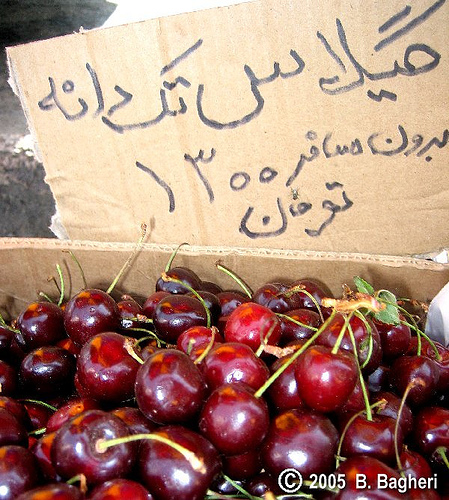 گیلاس تک دانه
بدون مسافر ۱۳۰۰
تومان
© 2005 B. Bagheri